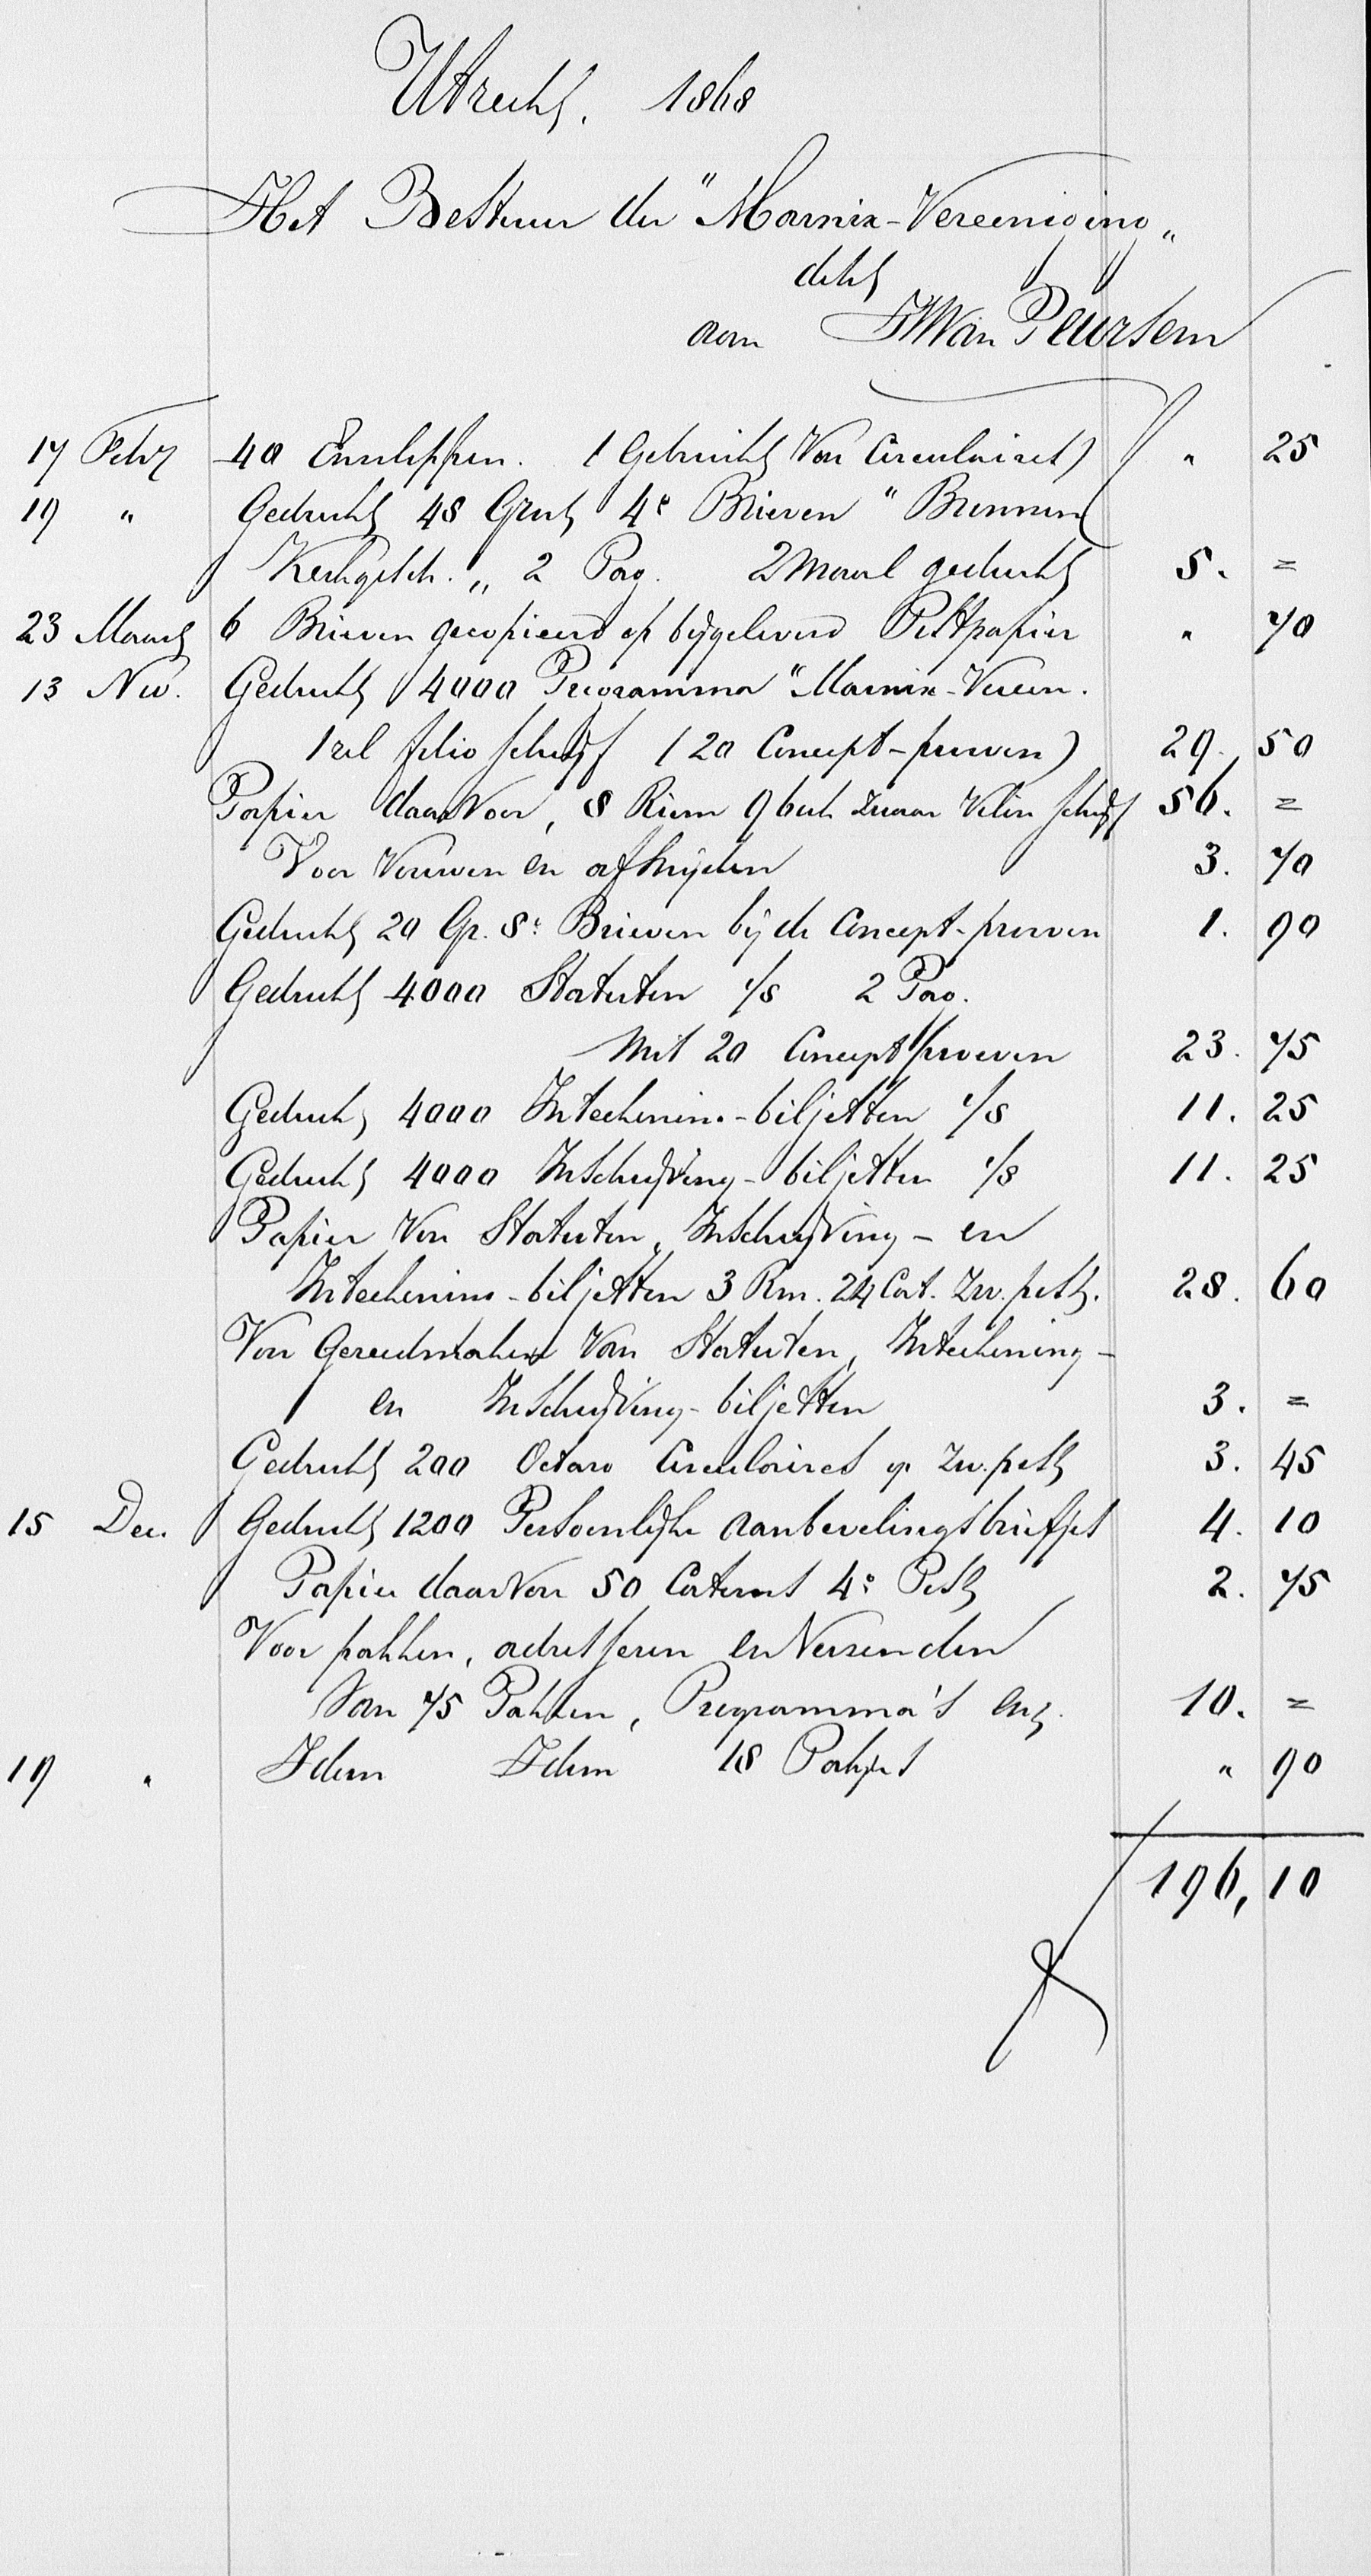 Utrecht, 1868
Het Bestuur der "Marnix-Vereeniging"
debet
aan van Peursem
17 Febr 40 Enveloppen. (Gebruikt voor Circulaires) f " 25
19 " Gedrukt 48 Groot 4o Brieven "Bronnen
Kerkgesch. " 2 Pag. 2 maal gedrukt 5. =
23 Maart 6 Brieven gecopieerd op bijgeleverd Postpapier " 70
13 Nov. Gedrukt 4000 Programma "Marnix-Vereen.
1 vel folio schrijf (20 Concept-proeven) 29. 50
Papier daarvoor, 8 Riem 9 boek zwaar Velin schrijf 56. =
Voor Vouwen en afsnijden 3. 70
Gedrukt 20 Gr. 8o Brieven bij de Concept-proeven 1. 90
Gedrukt 4000 Statuten 1/8 2 Pag.
met 20 Concept proeven 23. 75
Gedrukt 4000 Inteekenings-biljetten 1/8 11. 25
Gedrukt 4000 Inschrijving-biljetten 1/8 11. 25
Papier voor Statuten, Inschrijving- en
Inteekenings-biljetten 3 Rm. 24 Cat. zw. post. 28. 60
Voor Gereedmaken van Statuten, Inteekening-
en Inschrijving-biljetten 3. =
Gedrukt 200 Octavo Circulaires op zw. post 3. 45
15 Dec. Gedrukt 1200 Persoonlijke aanbevelingsbriefjes 4. 10
Papier daarvoor 50 Caterns 4o Post 2. 75
Voor pakken, adresseren en Verzenden
van 75 Pakken, Programma's enz. 10. =
19 " Idem Idem 18 Pakjes " 90
f 196,10